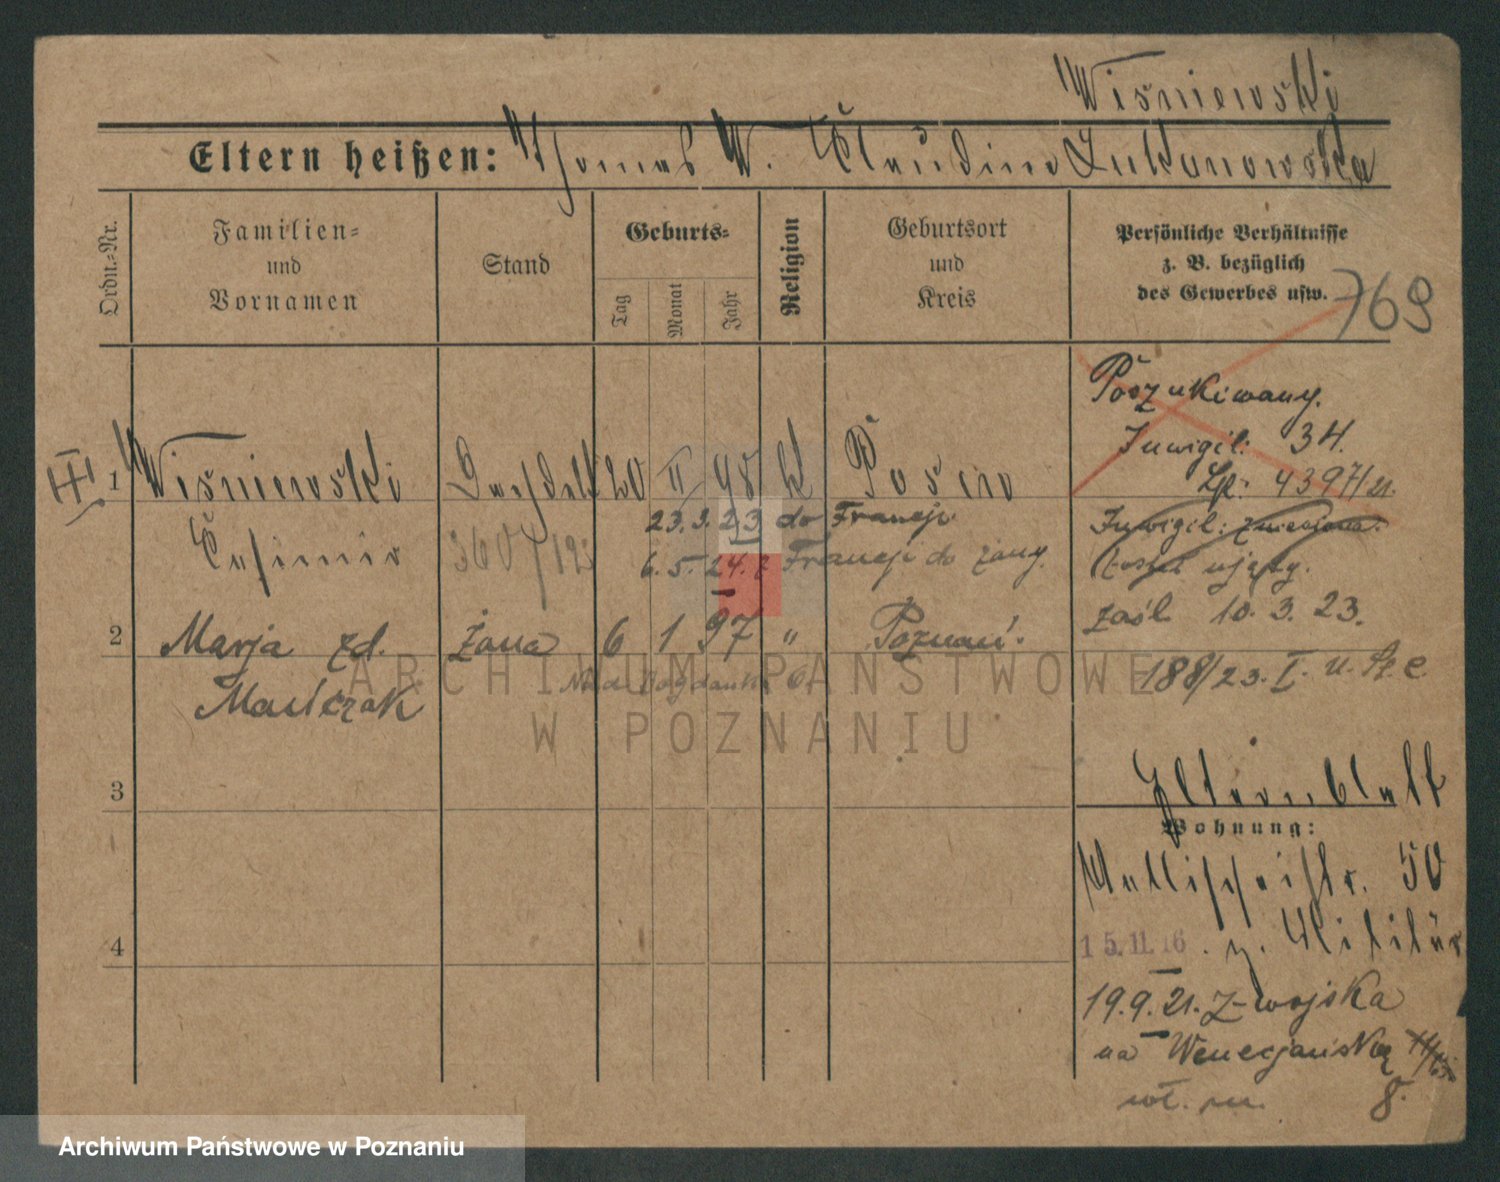 Wiśniewski
Eltern heißen: Thomas W. Claudine Lukanowska
Ordn.-Nr.
Familien-
und
Vornamen
Stand
Geburts-
Tag
Monat
Jahr
Religion
Geburtsort
und
Kreis
Persönliche Verhältnisse
z. B. bezüglich
des Gewerbes usw.
769
Poszukiwany.
Inwigil: 34.
Lp: 4397/21.
III
1 Wiśniewski 20 II 98 k Posen
23. 3. 23 do Francji
Inwigil: zniesiona.
Casimir
6. 5. 24. z Francji do żony.
został ujęty.
zaśl. 10. 3. 23.
2 Marja zd. żona 6 1 97 " Poznań.
188/23. I.
Maćkzak
Nad Bogdanką 6.
ARCHIWUM PAŃSTWOWE
W POZNANIU
Elternblatt
3
Wohnung:
Wallischeistr. 50
4
15.11.16. z. Militär
19.9.21. Z wojska
na Wenecjańska
8.
Archiwum Państwowe w Poznaniu